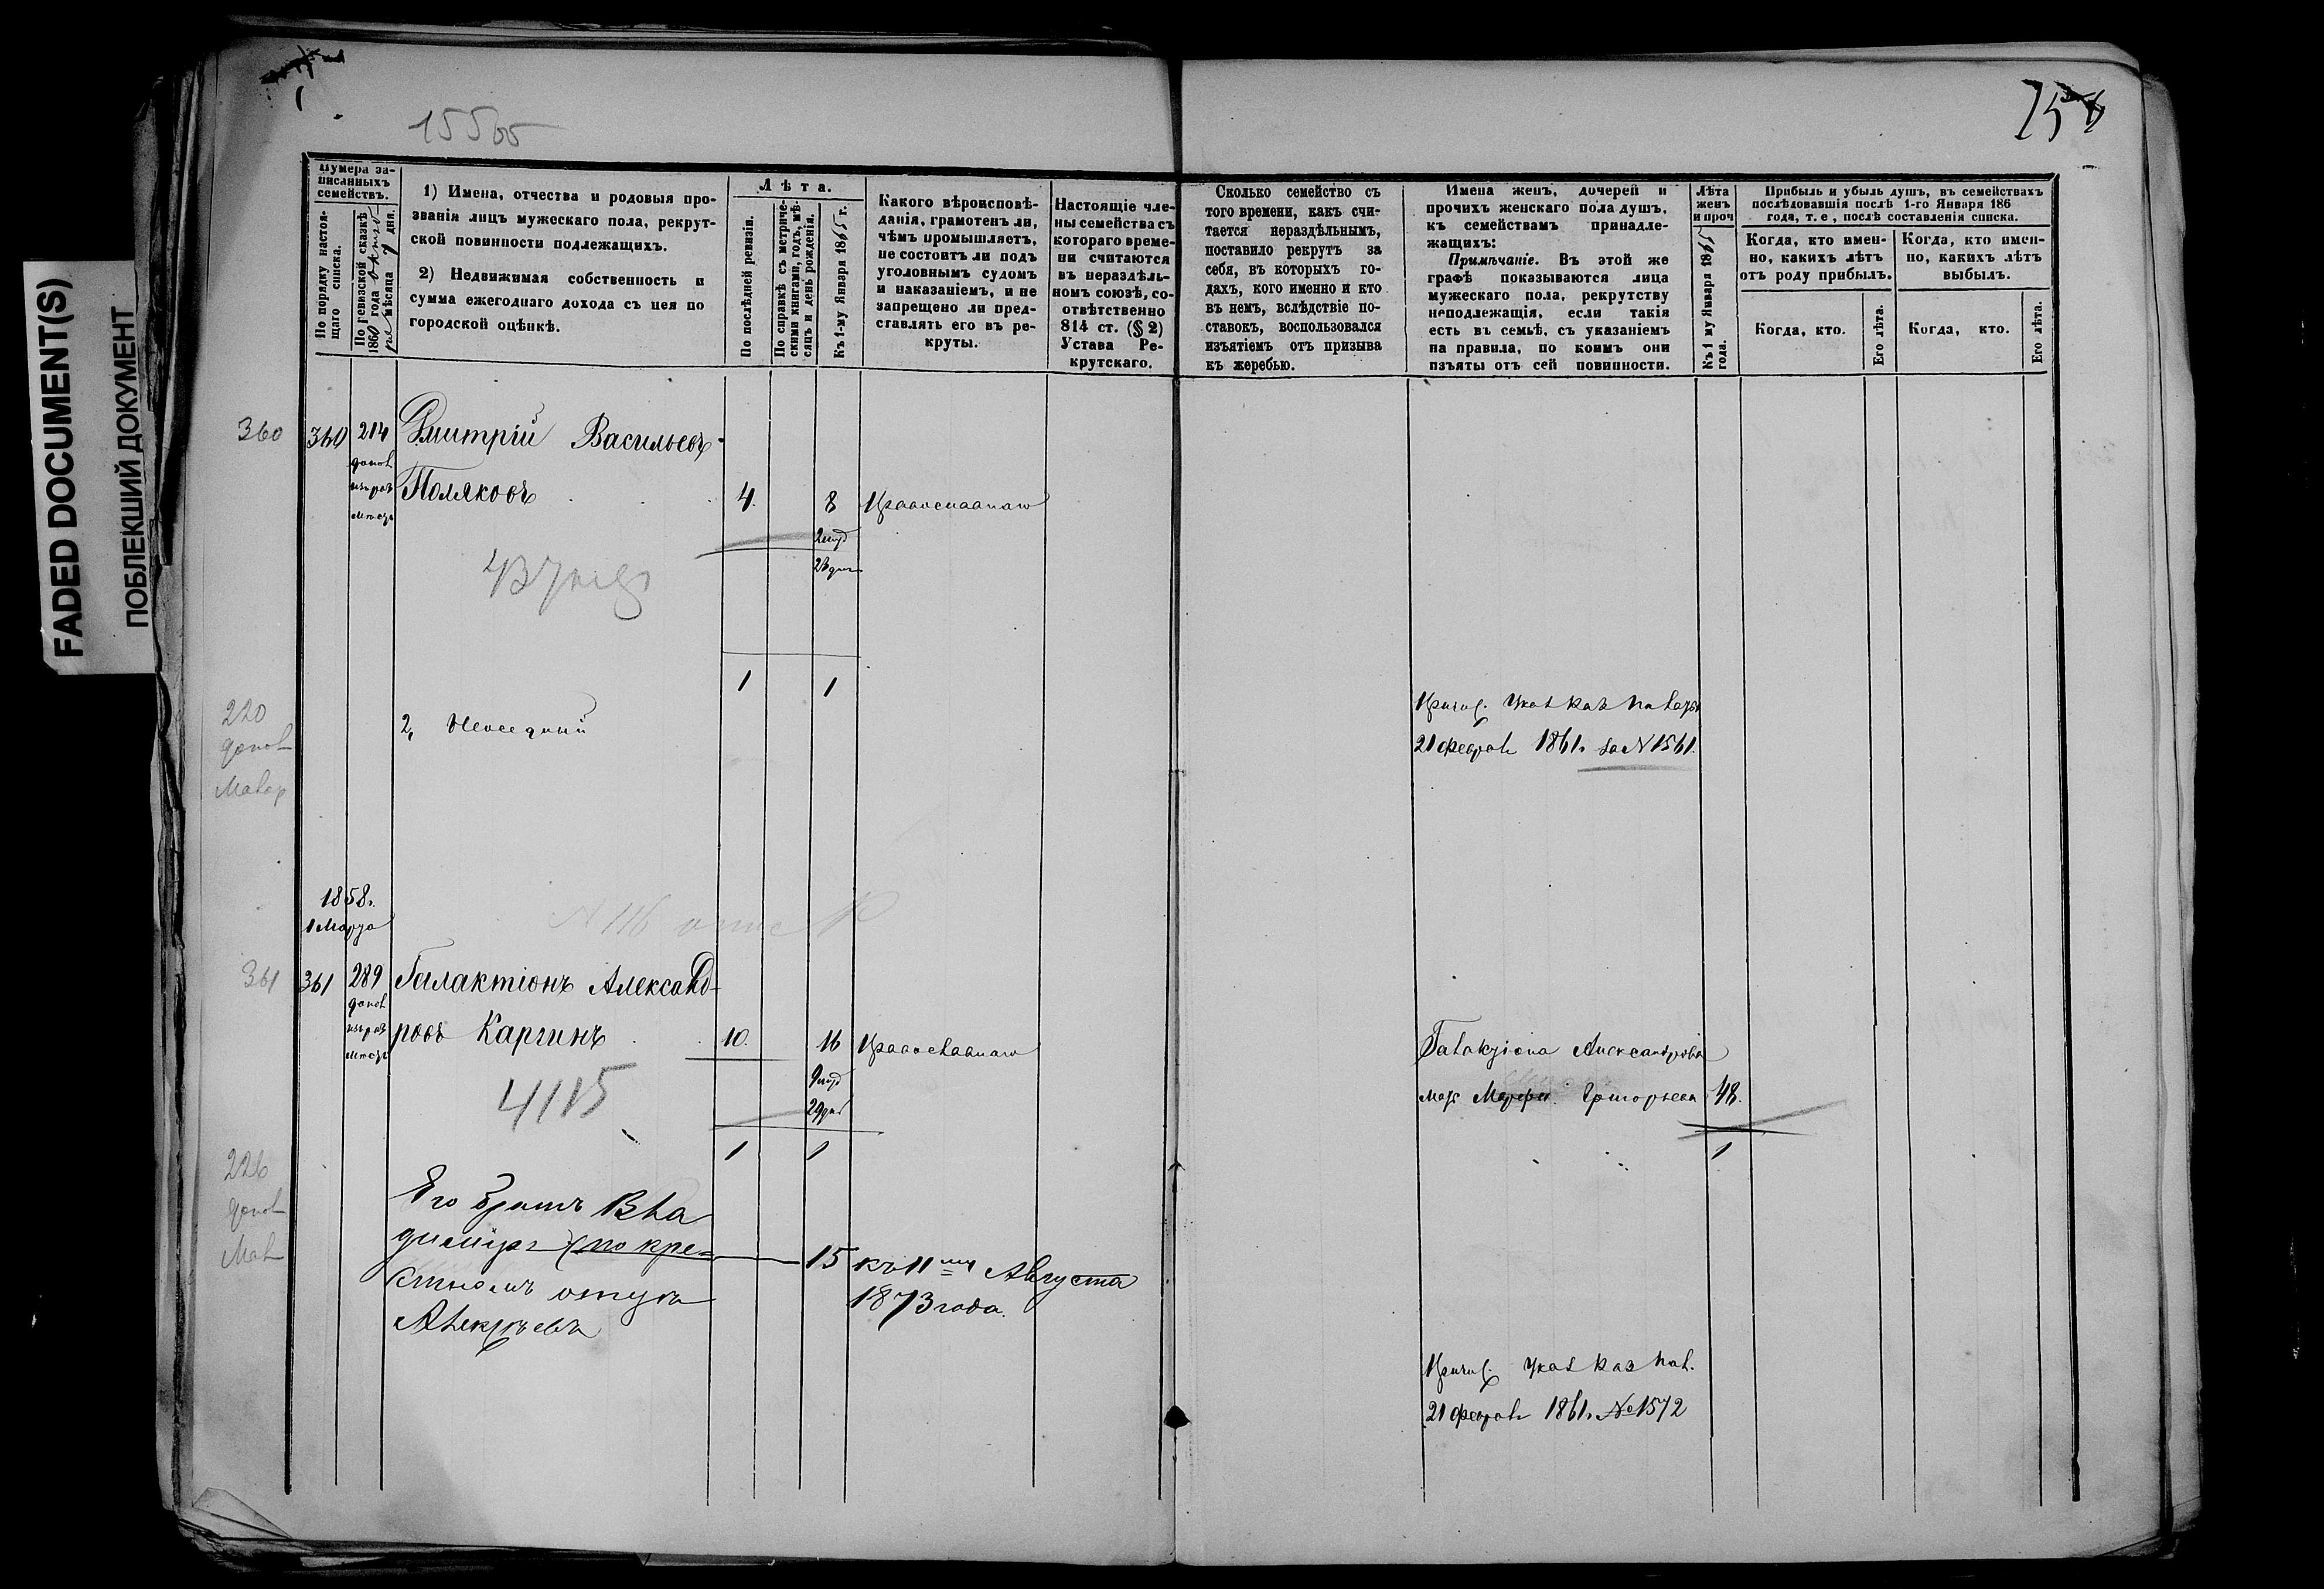 FADED DOCUMENT(S)
ПОБЛЕКШИЙ ДОКУМЕНТ
15505
Нумера за-
писанныхъ
семействъ.
По порядку настоя-
щаго списка.
По ревизской сказкѣ
1860 года
мѣсяца 7 дня.
1) Имена, отчества и родовыя про-
званія лицъ мужескаго пола, рекрут-
ской повинности подлежащихъ.
2) Недвижимая собственность и
сумма ежегоднаго дохода съ нея по
городской оцѣнкѣ.
Лѣта.
По послѣдней ревизіи.
По справкѣ съ метриче-
скими книгами, годъ, мѣ-
сяцъ и день рожденія.
Къ 1-му Января 1865 г.
Какого вѣроисповѣ-
данія, грамотенъ ли,
чѣмъ промышляетъ,
не состоитъ ли подъ
уголовнымъ судомъ
и наказаніемъ, и не
запрещено ли пред-
ставлять его въ ре-
круты.
Настоящіе чле-
ны семейства съ
котораго време-
ни считаются
въ нераздѣль-
номъ союзѣ, со-
отвѣтственно
814 ст. (§ 2)
Устава Ре-
крутскаго.
Сколько семейство съ
того времени, какъ счи-
тается нераздѣльнымъ,
поставило рекрутъ за
себя, въ которыхъ го-
дахъ, кого именно и кто
въ немъ, вслѣдствіе по-
ставокъ, воспользовался
изъятіемъ отъ призыва
къ жеребью.
Имена женъ, дочерей и
прочихъ женскаго пола душъ,
къ семействамъ принадле-
жащихъ:
Примѣчаніе. Въ этой же
графѣ показываются лица
мужескаго пола, рекрутству
неподлежащія, если такія
есть въ семьѣ, съ указаніемъ
на правила, по коимъ они
изъяты отъ сей повинности.
Лѣта
женъ
и проч
Къ 1 му Января 1865
года.
Прибыль и убыль душъ, въ семействахъ
послѣдовавшія послѣ 1-го Января 186
года, т. е, послѣ составленія списка.
Когда, кто имен-
но, какихъ лѣтъ
отъ роду прибылъ.
Когда, кто имен-
но, какихъ лѣтъ
выбылъ.
Когда, кто.
Его лѣта.
Когда, кто.
Его лѣта.
360
360 214 Дмитрій Васильевъ
допол
Поляковъ 4. 8 Православнаго
1 1
220
допол
2,
21 Феврал 1861г. за № 1561.
1858г.
1 Марта
361
361 289 Галактіонъ Александ-
допол
ровъ Каргинъ 10. 16 Православнаго
Галактіона Александрова
мать Григорьева 48.
4115
1 1 1
226
допол
Его братъ Вла
диміръ (по кре-
стномъ отцу
Алексѣевъ
15 къ 11му Августа
1873 года.
Указ Каз Пал.
21 Феврал 1861г. № 1572